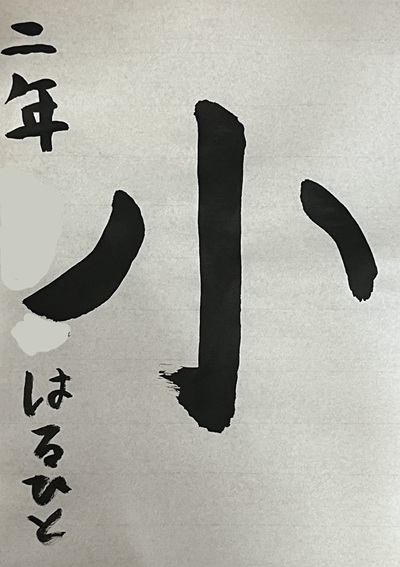 小
二年
はるひと